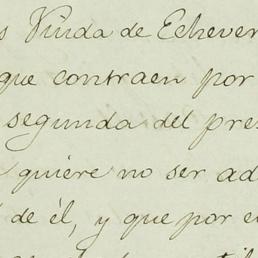 s Viuda de Echever
que contraen por
segunda del pres
quiere no ser ad
de él, y que por e